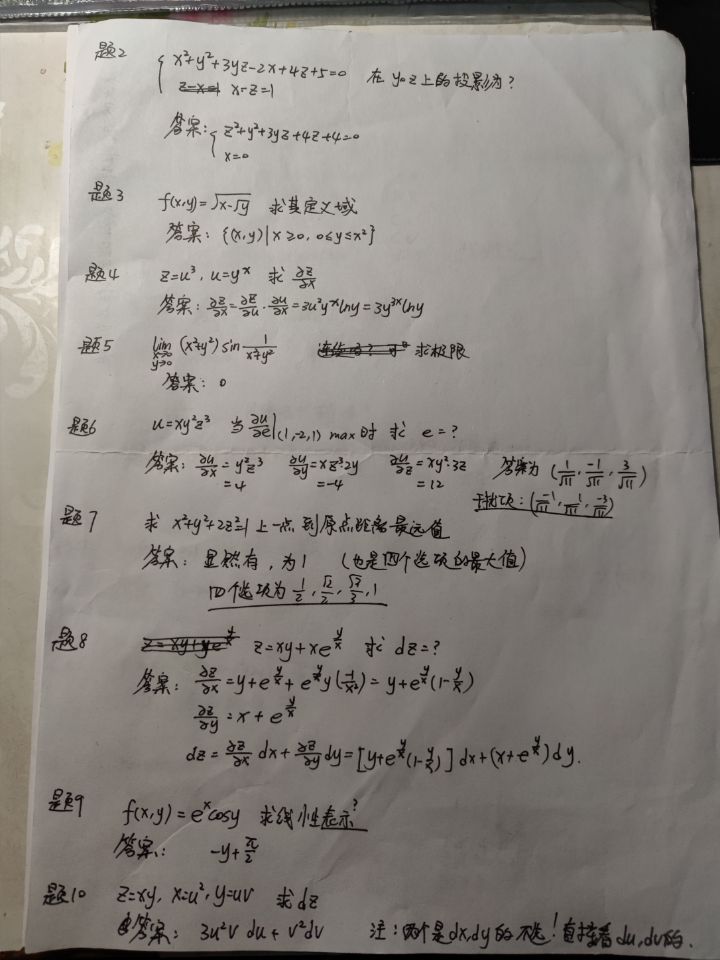 题2 { x²+y²+3yz-2x+4z+5=0
x-z=1 在 yoz 上的投影为?
答案: { z²+y²+3yz+4z+4=0
x=0
题3 f(x,y)=√(x-√y) 求其定义域
答案: {(x,y)|x≥0, 0≤y≤x²}
题4 z=u³, u=y^x 求 ∂z/∂x
答案: ∂z/∂x=∂z/∂u·∂u/∂x=3u²y^x lny=3y^(3x) lny
题5 lim x→0 y→0 (x²+y²) sin 1/(x²+y²) 求极限
答案: 0
题6 u=xy²z³ 当 ∂u/∂e|(1,-2,1) max时 求 e=?
答案: ∂u/∂x=y²z³ ∂u/∂y=xz³2y ∂u/∂z=xy²·3z 答案为 (1/√11, -1/√11, 3/√11)
=4 =-4 =12
干扰项: (-1/√11, 1/√11, -3/√11)
题7 求 x²+y²+2z²=1 上一点到原点距离最远值
答案: 显然有, 为1 (也是四个选项的最大值)
四个选项为 1/2, √2/2, √3/3, 1
题8 z=xy+xe^(y/x) 求 dz=?
答案: ∂z/∂x=y+e^(y/x)+e^(y/x)y(-1/x²)=y+e^(y/x)(1-y/x)
∂z/∂y=x+e^(y/x)
dz=∂z/∂x dx+∂z/∂y dy=[y+e^(y/x)(1-y/x)]dx+(x+e^(y/x))dy.
题9 f(x,y)=e^x cosy 求线性表示?
答案: -y+π/2
题10 z=xy, x=u², y=uv 求dz
答案: 3u²v du+v²dv 注: 两个是dx,dy的不选! 直接看du,dv的.